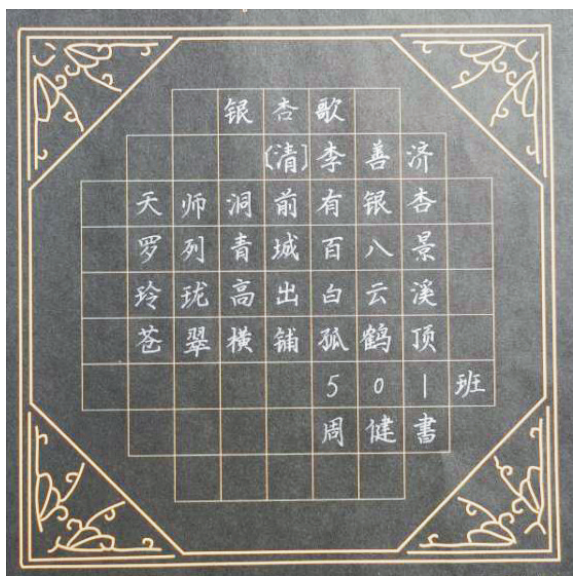 银杏歌
[清]李善济
天师洞前有银杏
罗列青城百八景
玲珑高出白云溪
苍翠横铺孤鹤顶
501班
周健書